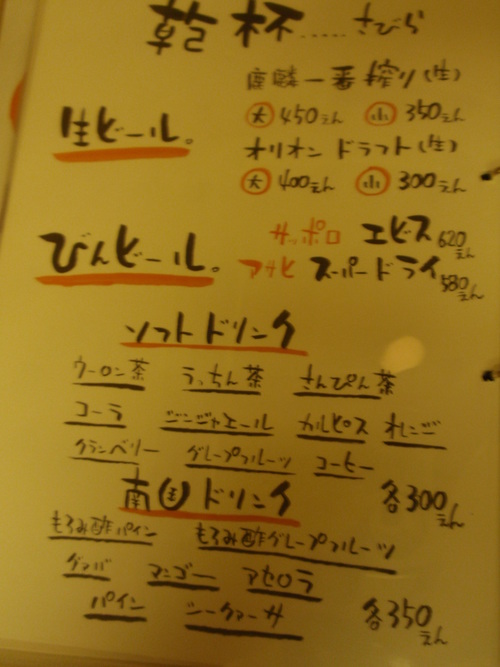 乾杯.....さびら
麒麟一番搾り(生)
生ビール。
大 450えん 小 350えん
オリオンドラフト(生)
大 400えん 小 300えん
びんビール。
サッポロ エビス 620えん
アサヒ スーパードライ 580えん
ソフトドリンク
ウーロン茶 うっちん茶 さんぴん茶
コーラ ジンジャエール カルピス オレンジ
クランベリー グレープフルーツ コーヒー
各300えん
南国ドリンク
もろみ酢パイン もろみ酢グレープフルーツ
グァバ マンゴー アセロラ
パイン シークァーサ 各350えん